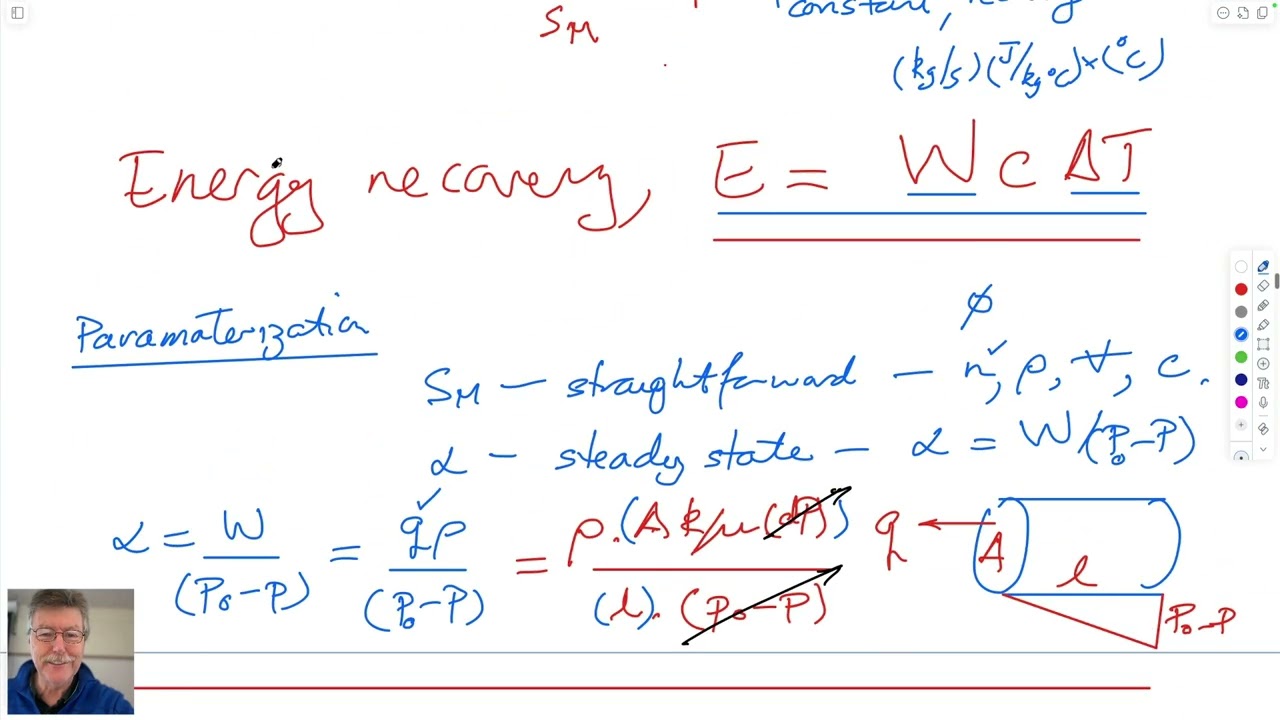 constant,
S_M
(kg/s)(J/kg°C)×(°C)
Energy recovery, E = W c ΔT
Paramaterization
φ
S_M — straightforward — n, ρ, V, c.
α — steady state — α = W/(P₀-P)
α = W/(P₀-P) = qρ/(P₀-P) = ρ.(A k/μ(dP))/(l).(P₀-P)
q A l
P₀-P
Tt